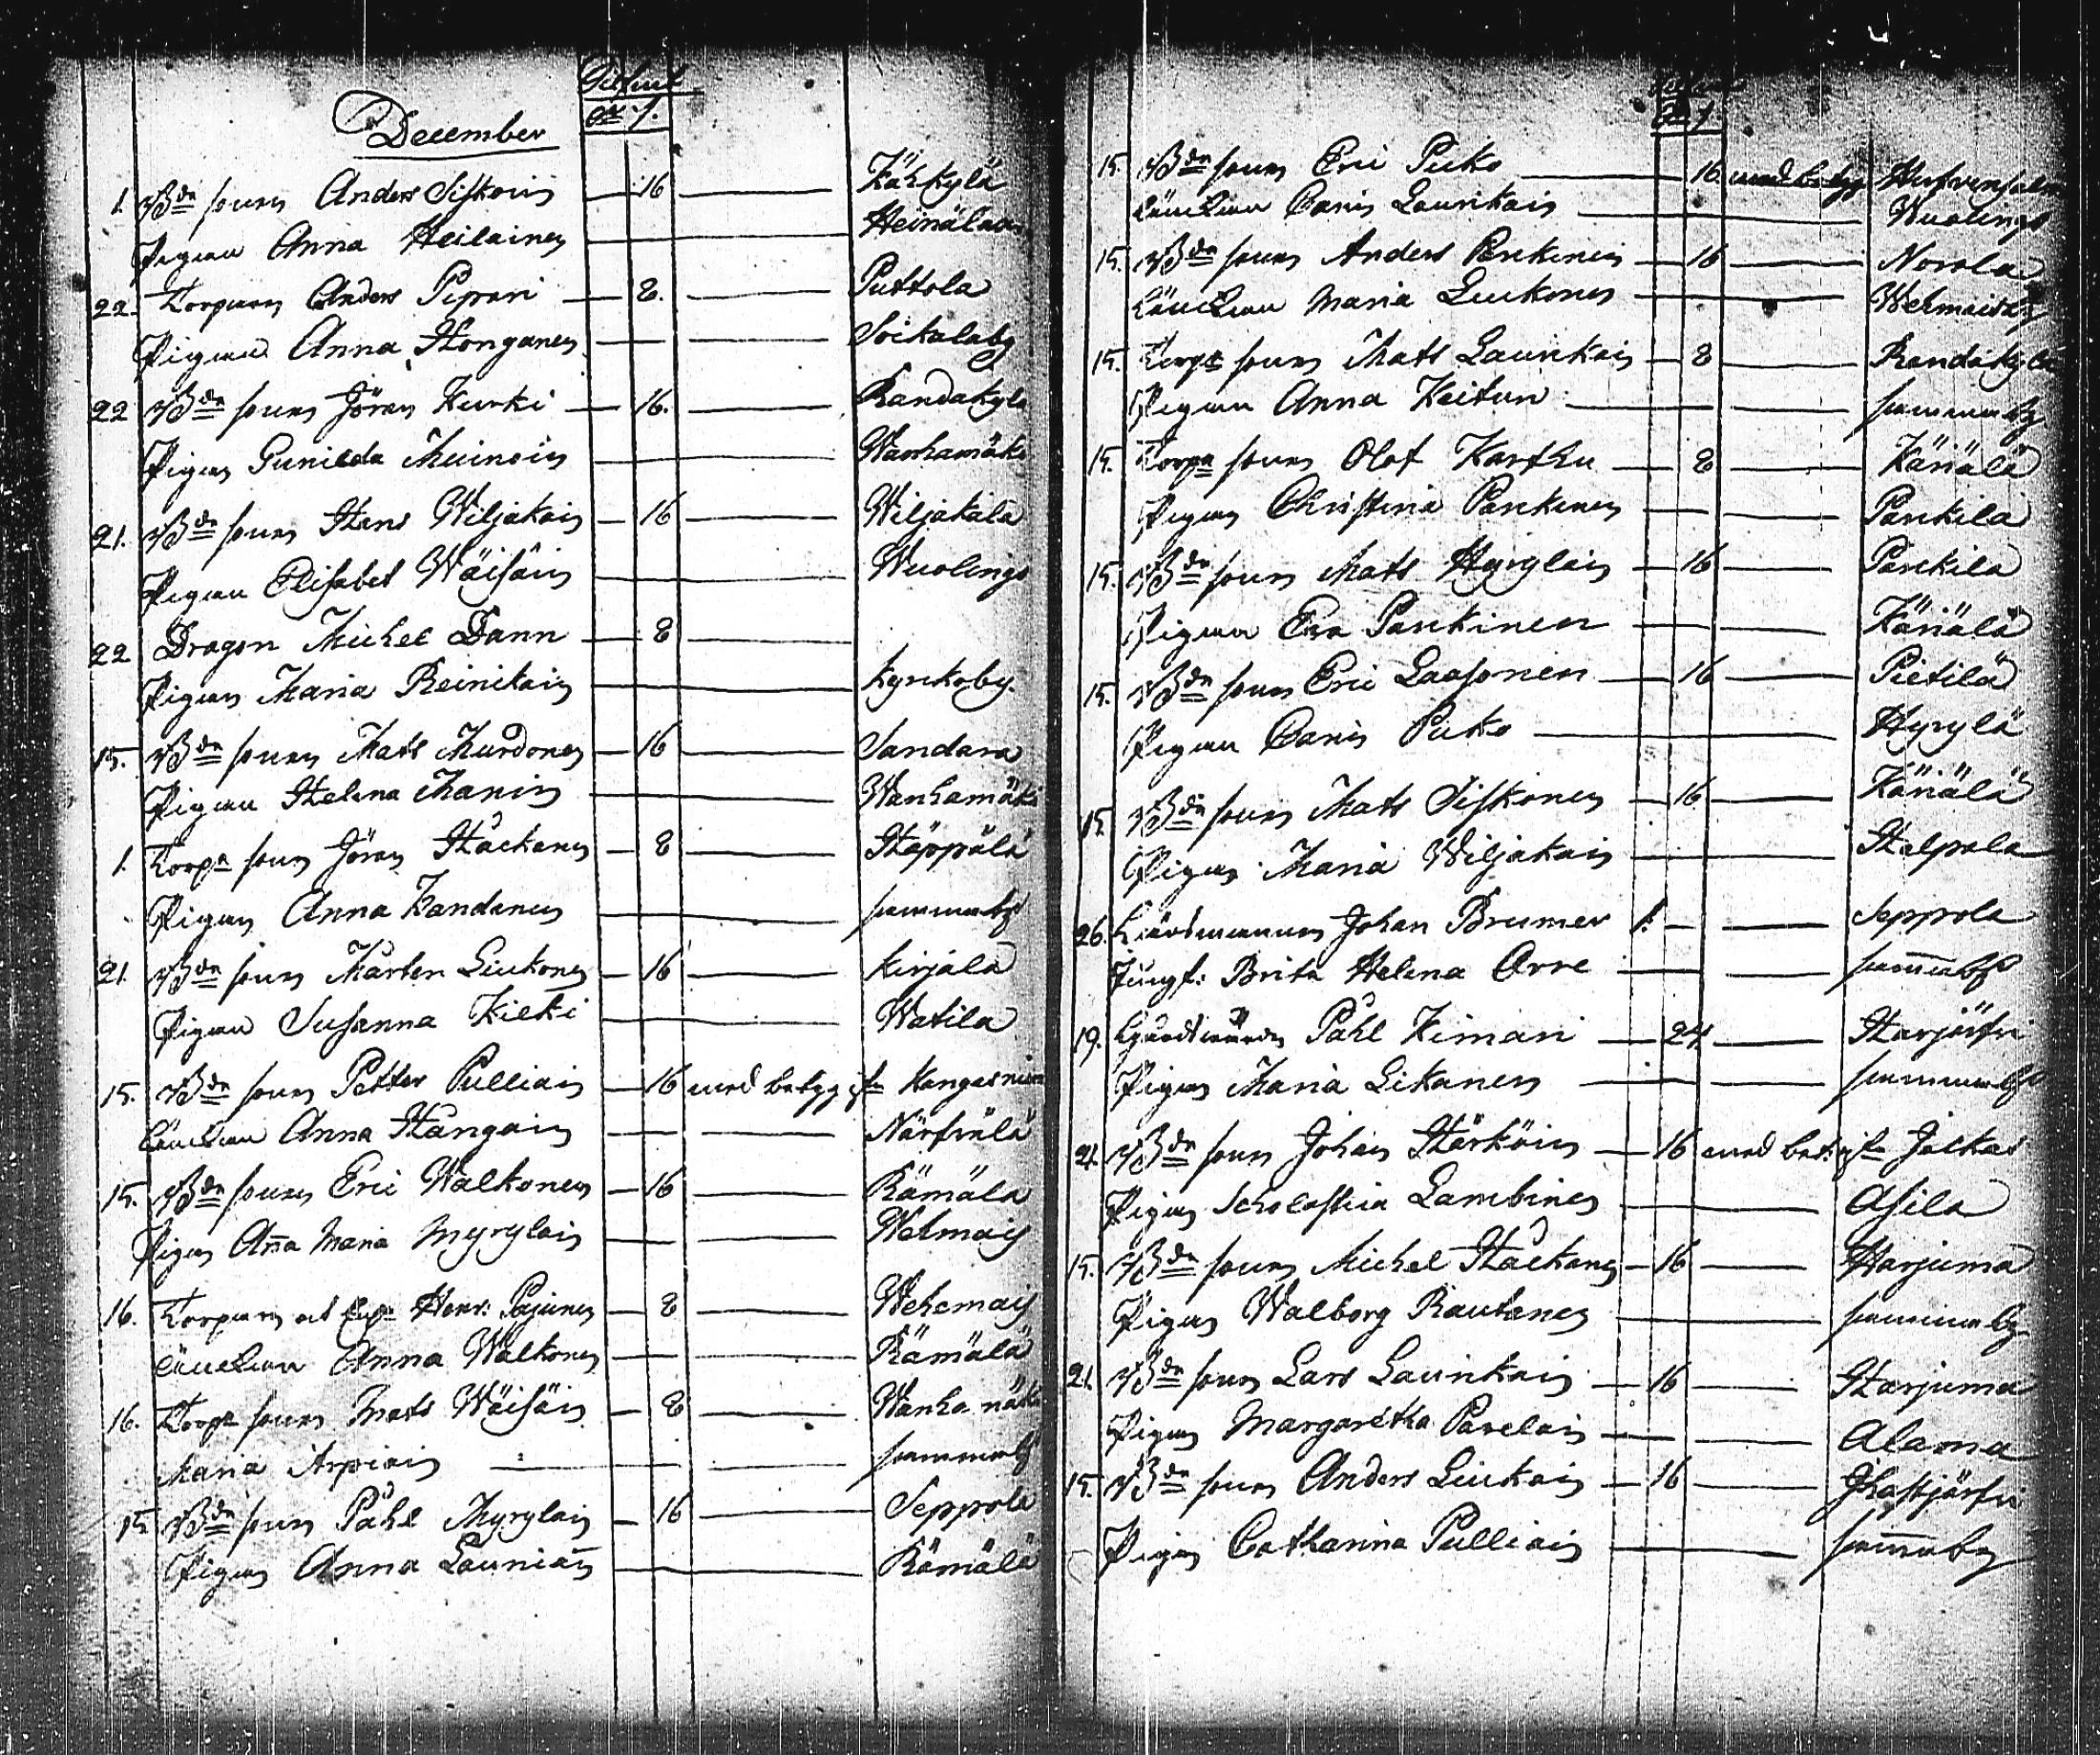 December
1. Bdn sonen Anders Siskoin — 16 — Kähkylä
Pigan Anna Heilainen — Heinälax
22. Torparn Anders Pipari — 8. — Puttola
Pigan Anna Honganen — Soikalaby
22 Bdn sonen Jöran Kurki — 16. — Randakylä
Pigan Gunilda Muinoin — Wanhamäki
21. Bdn sonen Hans Wiljakain — 16 — Wiljakala
Pigan Elisabet Wäisäin — Wuolings
22 Dragon Michel Dann — 8 —
Pigan Maria Reinikain — Kyrkoby.
15. Bdn sonen Mats Murdonen — 16 — Sandara
Pigan Helena Manin — Wanhamäki
1. Torpn sonen Jöran Häckanen — 8 — Häppälä
Pigan Anna Kandanen — sammaby
21. Bdn sonen Mårten Liukonen — 16 — Kirjala
Pigan Susanna Kilki — Watila
15. Bdn sonen Petter Pulliain — 16 med betyg ifn Kangasniemi
Änckan Anna Hangain — Närfvälä
15. Bdn sonen Eric Walkonen — 16 — Rämälä
Pigan Aña Maria Myrylain — Wehmais
16. Torparn Henr: Pajunen — 8 — Wehemais
Änckan Anna Walkonen — Rämälä
16. Torpn sonen Mats Wäisäin — 8 — Wanhamäki
Maria Arpiain — sammaby
15. Bdn sonen Påhl Myrylain — 16 — Seppola
Pigan Anna Launiañ — Rämälä
15. Bdn sonen Eric Puko — 16 med betyg Hufvensalmi
Änckan Carin Laurikain — Wuolings
15. Bdn sonen Anders Pankinen — 16 — Norola
Änckan Maria Liukonen — Wehmaisby
15. Torpn sonen Mats Laurikain — 8 — Randakylä
Pigan Anna Keitun — sammaby
15. Torpn sonen Olof Karfhu — 8 — Käriälä
Pigan Christina Pankinen — Pankila
15. Bdn sonen Mats Hyrylain — 16 — Pankila
Pigan Eva Pankinen — Käriälä
15. Bdn sonen Eric Laasonen — 16 — Pietilä
Pigan Carin Puko — Hyrylä
15. Bdn sonen Mats Siskonen — 16 — Käriälä
Pigan Maria Wiljakain — Halpala
26. Länsmannen Johan Brumer 1. — Seppola
Jungf: Brita Helena Orre — sam̃aby
19. Påhl Kimari — 24. — Harjärfvi
Pigan Maria Likanen — sammaby
21. Bdn sonen Johan Härköin — 16 med bet: ifn Jolkas
Pigan Scholastica Lambinen — Asila
15. Bdn sonen Michel Häckanen — 16 — Harjuma
Pigan Walborg Rautanen — sammaby
21. Bdn sonen Lars Laurikain — 16 — Harjuma
Pigan Margaretha Pavelain — Alama
15. Bdn sonen Anders Liukoin — 16 — Ihastjärfvi
Pigan Catharina Pulliain — sam̃aby